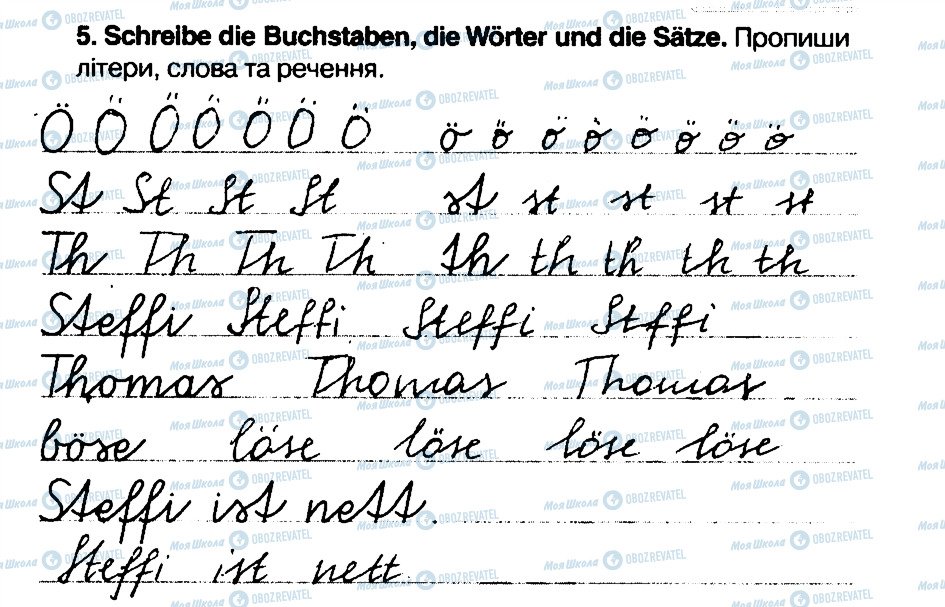 5. Schreibe die Buchstaben, die Wörter und die Sätze. Пропиши
літери, слова та речення.
Ö Ö Ö Ö Ö Ö Ö ö ö ö ö ö ö ö ö
St St St St st st st st st
Th Th Th Th th th th th th
Steffi Steffi Steffi Steffi
Thomas Thomas Thomas
böse böse böse böse böse
Steffi ist nett.
Steffi ist nett